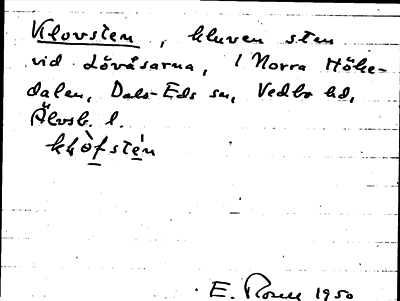 Klovsten, kluven sten
vid Lövåsarna, i Norra Höke-
dalen, Dals-Eds sn, Vedbo hd,
Älvsb. l.
klòfstén
E. 1950